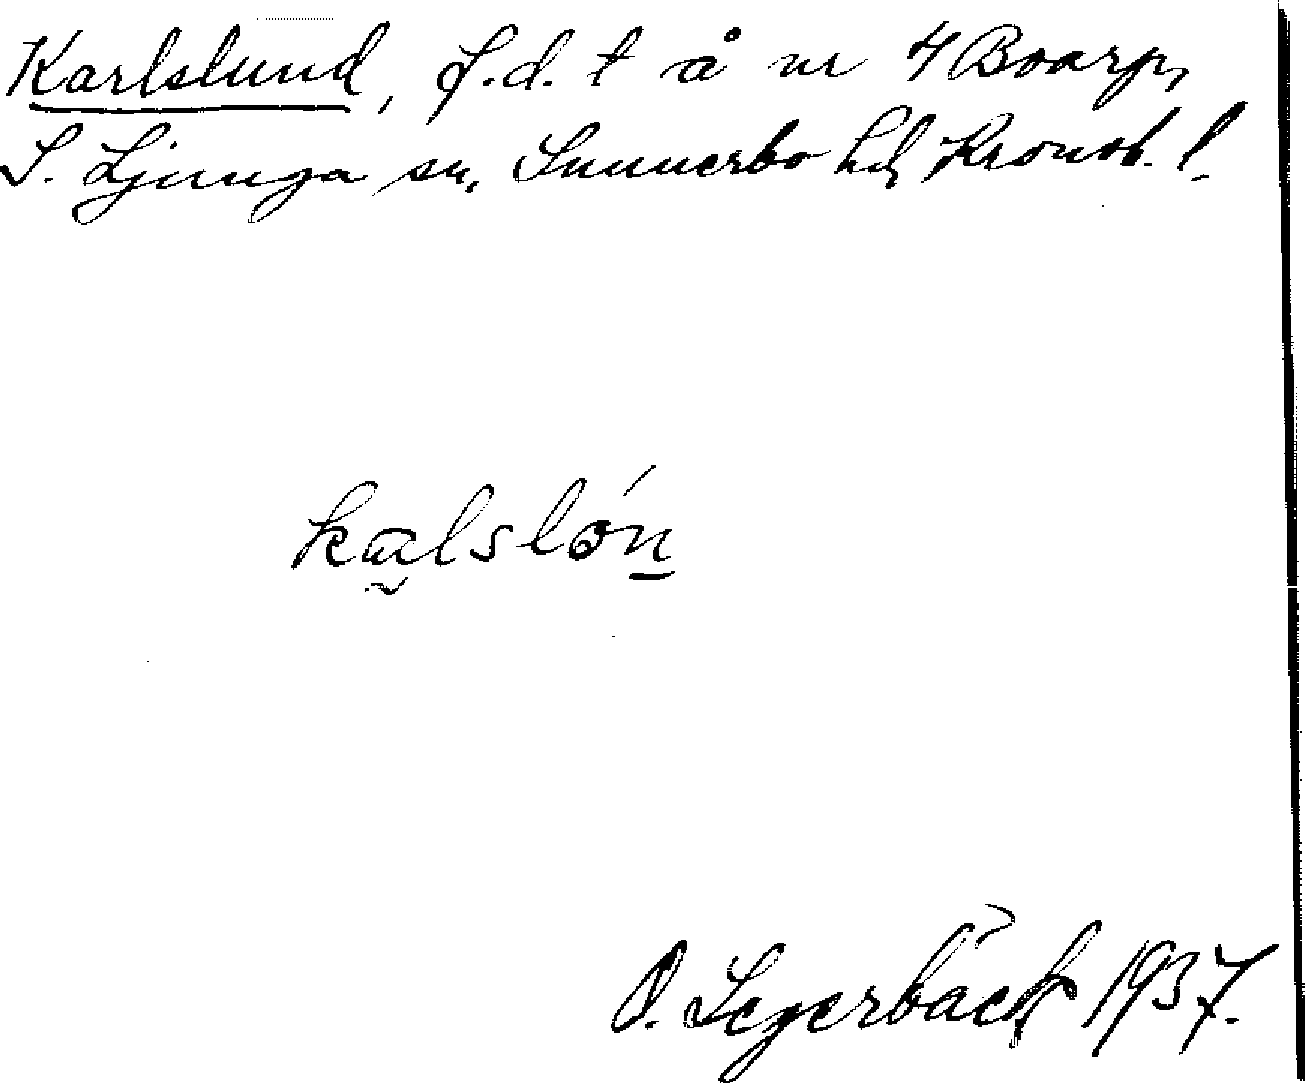 Karlslund, f.d. t å nr 4 Boarp,
S. Ljunga sn, Sunnerbo hd, Kronob. l.
kalslón
O. Segerbäck 1937.